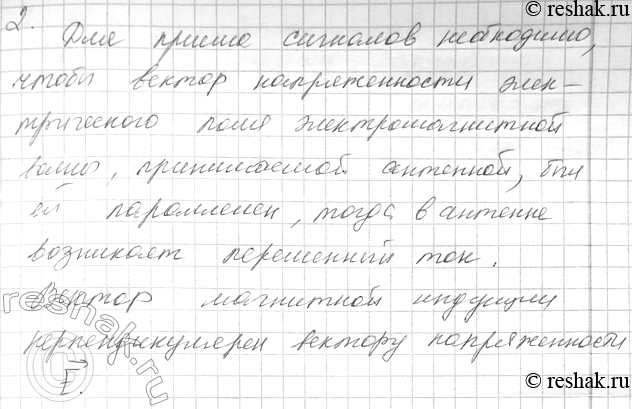 © reshak.ru
2. Для приема сигналов необходимо,
чтобы вектор напряженности элек-
трического поля электромагнитной
волны, принимаемой антенной, был
ей параллелен, тогда в антенне
возникает переменный ток.
Вектор магнитной индукции
перпендикулярен вектору напряженности
E.
© reshak.ru
© reshak.ru